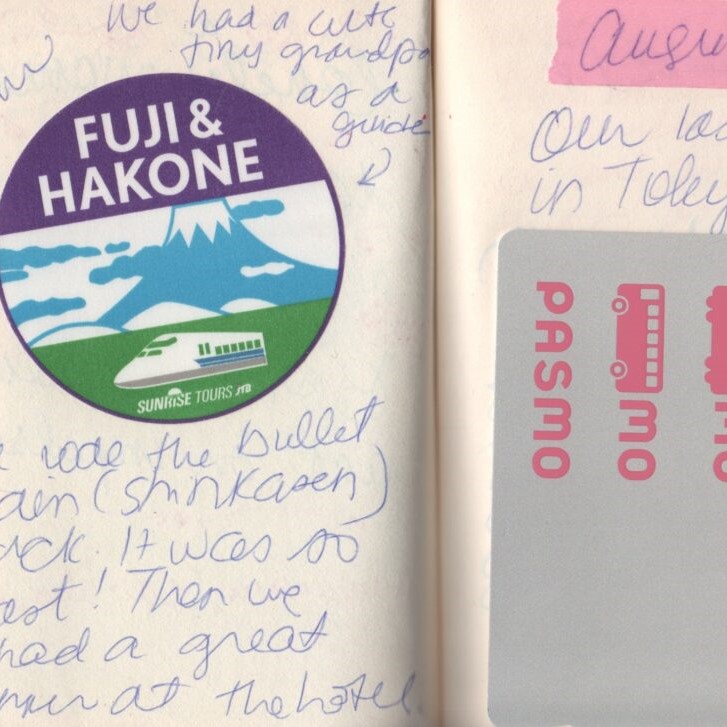 We had a cute
tiny grandpa
as a
guide
FUJI &
HAKONE
SUNRISE TOURS JTB
rode the bullet
(shinkasen)
It was so
! Then we
had a great
at the hotel.
Our
in
PASMO
MO